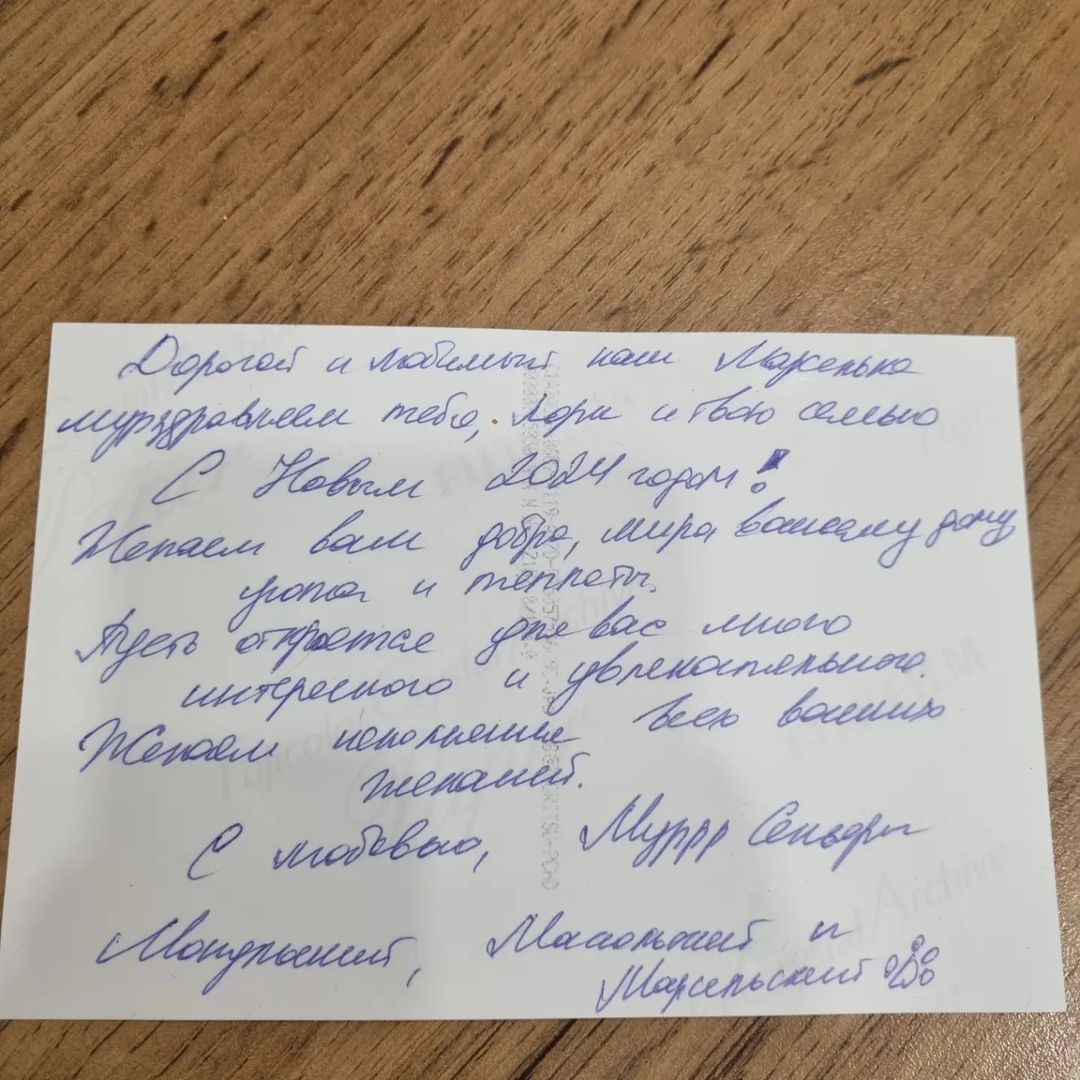 Дорогой и любимый наш Марселька
мурздравляем тебя, Лори и твою семью
С Новым 2024 годом!
Желаем вам добра, мира, вашему дому
уюта и теплоты.
Пусть откроется для вас много
интересного и увлекательного.
Желаем исполнения всех ваших
желаний.
С любовью, Муррр Сеньоры
и
Марсельский